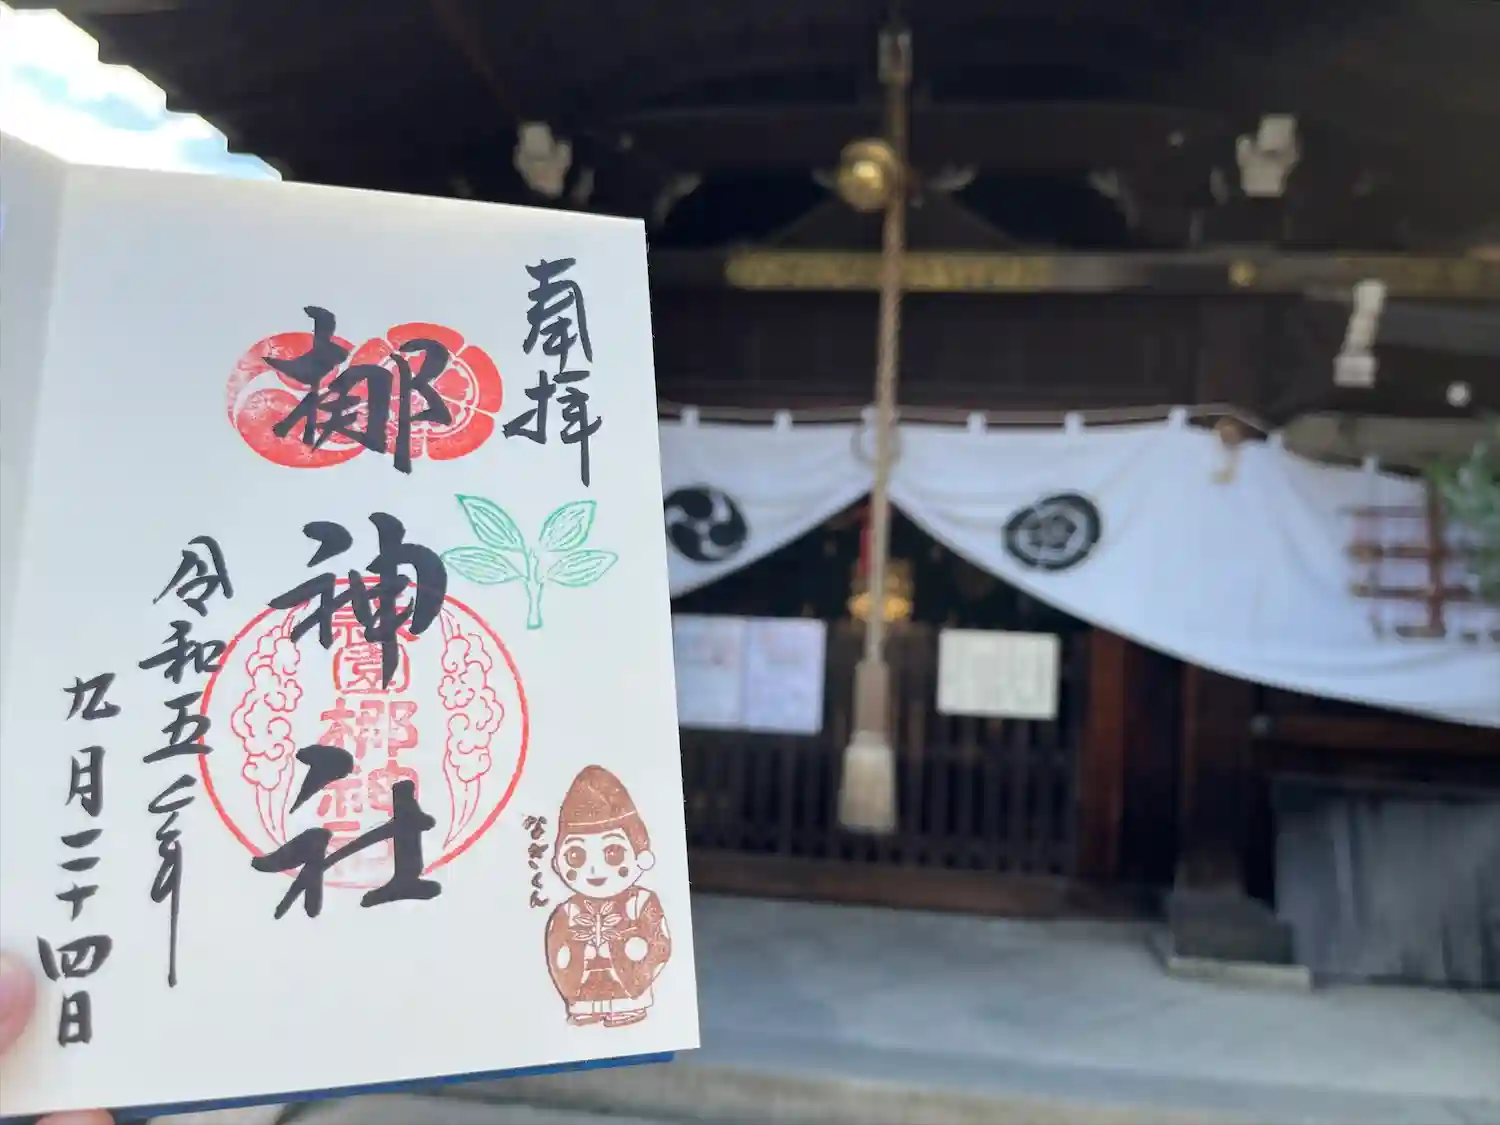 奉拝
梛神社
令和五年
九月二十四日
なぎくん